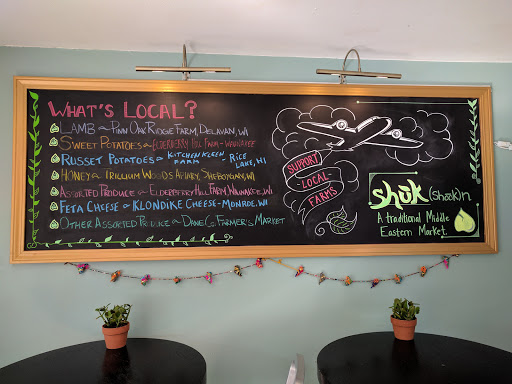 What's Local?
Lamb ~ Pinn Oak Ridge Farm, Delavan, WI
Sweet Potatoes ~ Elderberry Hill Farm - Waunakee
Russet Potatoes ~ Kitchen Kleen Farm ~ Rice Lake, WI
Honey ~ Trillium Woods Apiary, Sheboygan, WI
Assorted Produce ~ Elderberry Hill Farm, Waunakee, WI
Feta Cheese ~ Klondike Cheese - Monroe, WI
Other Assorted Produce ~ Dane Co. Farmer's Market
Support
Local
Farms
shūk (shook) n
A traditional Middle
Eastern Market.